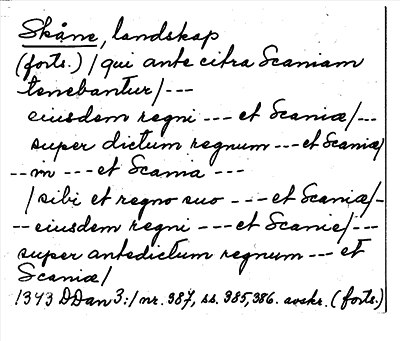 Skåne, landskap
(forts.) / qui ante citra Scaniam
tenebantur/ ---
eiusdem regni --- et Scaniæ/---
super dictum regnum --- et Scaniæ/
--m --- et Scania ---
/ sibi et regno suo --- et Scaniæ/-
-- eiusdem regni --- et Scanie/---
super antedictum regnum --- et
Scaniæ/
1343 DDan 3:1 nr. 387, ss. 385, 386. avskr. (forts.)